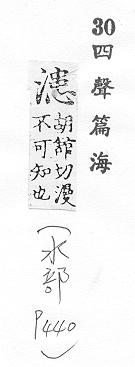 30 四聲篇海
漶
胡舘切漫
不可知也
(水部 P440)